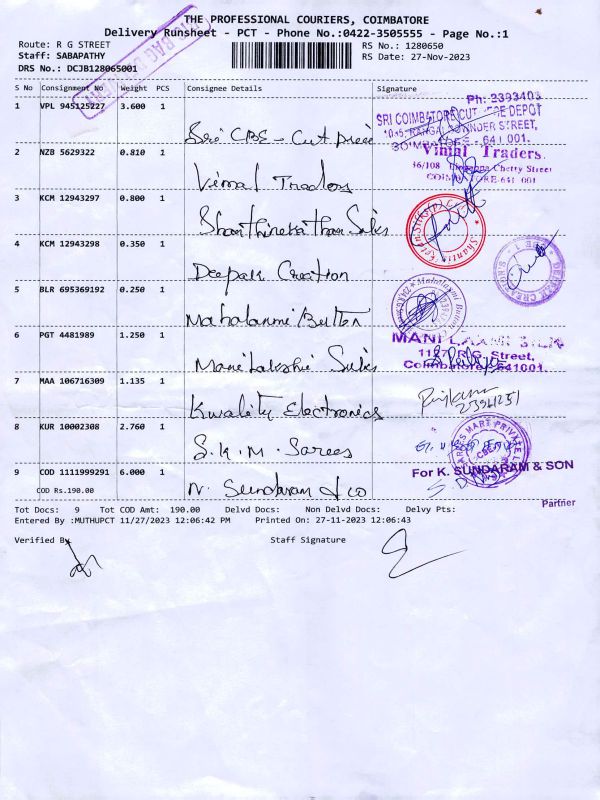 THE PROFESSIONAL COURIERS, COIMBATORE
Delivery Runsheet - PCT - Phone No.:0422-3505555 - Page No.:1
Route: R G STREET
RS No.: 1280650
Staff: SABAPATHY
RS Date: 27-Nov-2023
DRS No.: DCJB128065001
S No Consignment No Weight PCS Consignee Details Signature
1 VPL 945125227 3.600 1 Sri CBE - Cut Piece
Ph: 2393403
SRI COIMBATORE CUT PIECE DEPOT
STREET,
COIMBATORE - 641 001.
2 NZB 5629322 0.810 1 Vimal Traders
Vimal Traders.
Chetty Street
COIMBATORE-641 001
3 KCM 12943297 0.800 1 Silks
4 KCM 12943298 0.350 1 Deepak Creation
5 BLR 695369192 0.250 1 Mahalaxmi Button
6 PGT 4481989 1.250 1 Mani Lakshi Silks
MANI LAXMI SILK
R.G. Street,
Coimbatore 641001.
7 MAA 106716309 1.135 1 Kwality Electronics
8 KUR 10002308 2.760 1 S.K.M. Sarees
9 COD 1111999291 6.000 1 N. Sundaram & co
COD Rs.190.00
For K. SUNDARAM & SON
Partner
Tot Docs: 9 Tot COD Amt: 190.00 Delvd Docs: Non Delvd Docs: Delvy Pts:
Entered By :MUTHUPCT 11/27/2023 12:06:42 PM Printed On: 27-11-2023 12:06:43
Verified By
Staff Signature